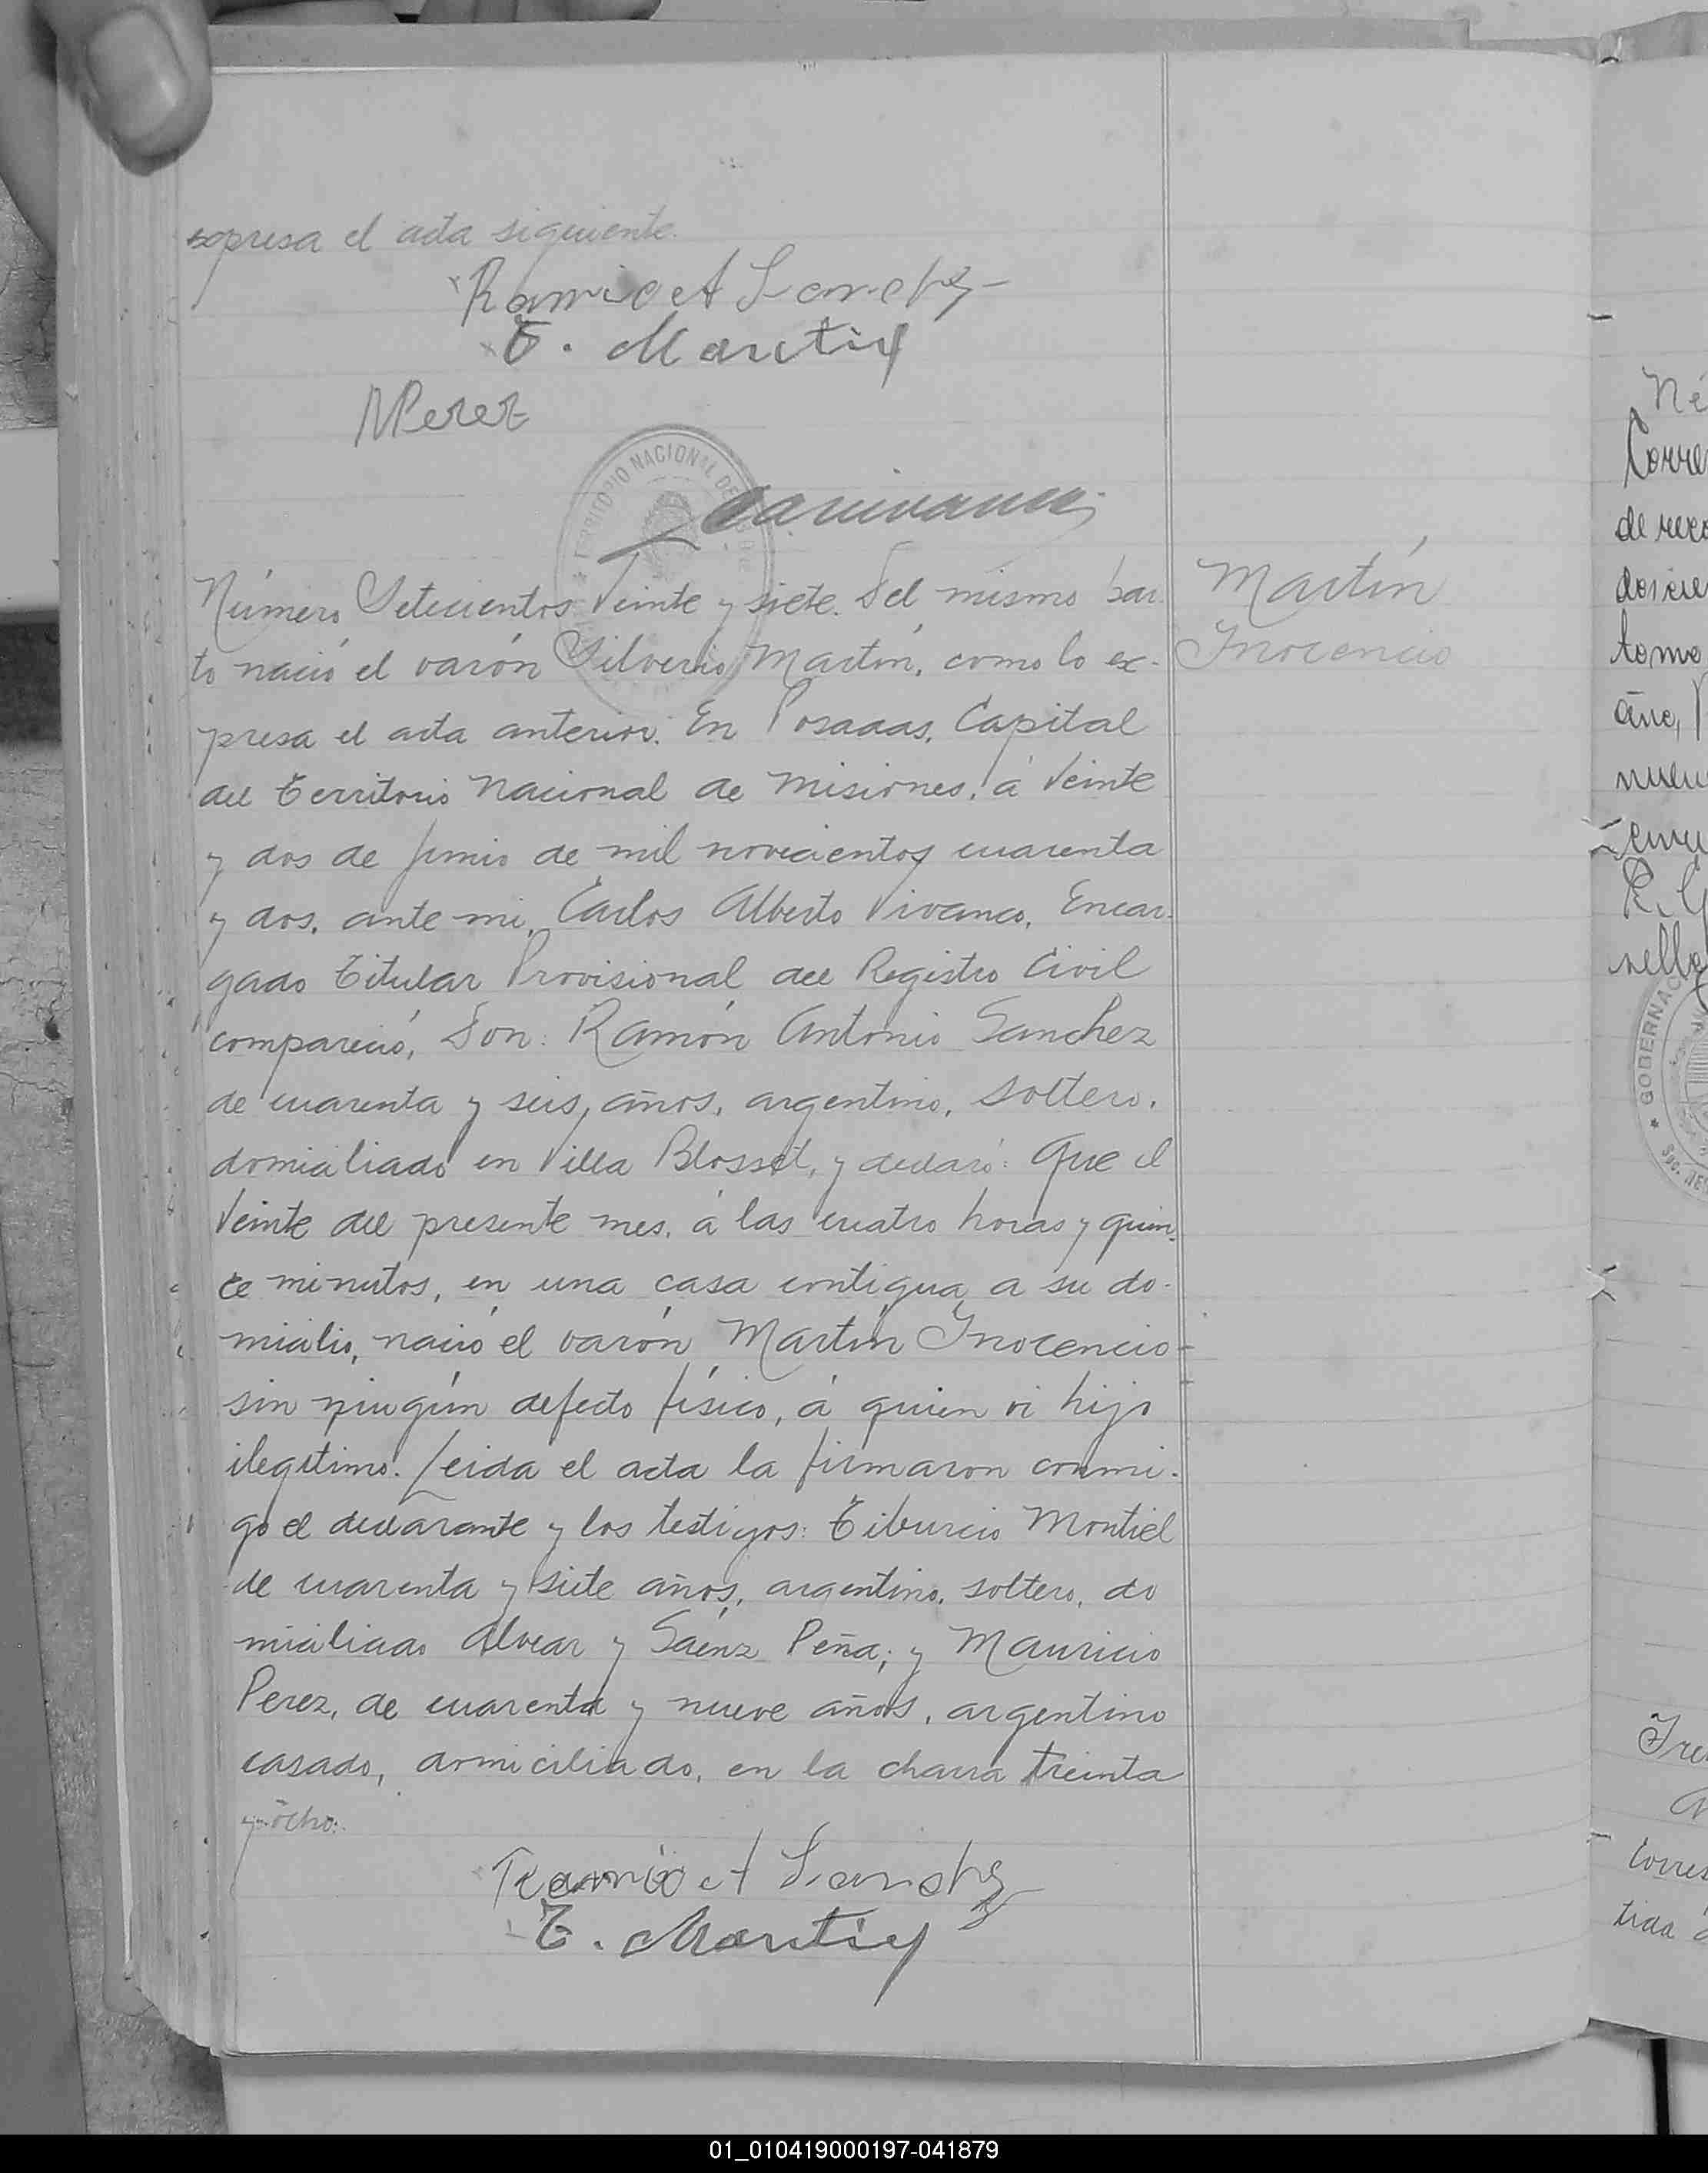 expresa el acta siguiente.
Ramón A Sanchez
T. Montiel
MPerez
TERRITORIO NACIONAL DE
Número Setecientos Veinte y siete. Del mismo par-
to nació el varón Silverio Martín, como lo ex-
presa el acta anterior. En Posadas, Capital
del Territorio Nacional de Misiones, á Veinte
y dos de Junio de mil novecientos cuarenta
y dos, ante mi, Carlos Alberto Vivanco, Encar-
gado Titular Provisional del Registro Civil
compareció, Don: Ramón Antonio Sanchez
de cuarenta y seis, años, argentino, soltero,
domiciliado en Villa Blosset, y declaró: Que el
Veinte del presente mes, á las cuatro horas y quin-
ce minutos, en una casa contigua a su do-
micilio, nació el varón Martín Inocencio
sin ningún defecto físico, á quien vi hijo
ilegítimo. Leida el acta la firmaron conmi-
go el declarante y los testigos: Tiburcio Montiel
de cuarenta y siete años, argentino, soltero, do
miciliado Alvear y Saénz Peña; y Mauricio
Perez, de cuarenta y nueve años, argentino
casado, domiciliado, en la chacra treinta
y ocho.
Ramón A Sanchez
T. Montiel
Martín
Inocencio
Corre
tomo
sello
GOBERNAC
01_010419000197-041879